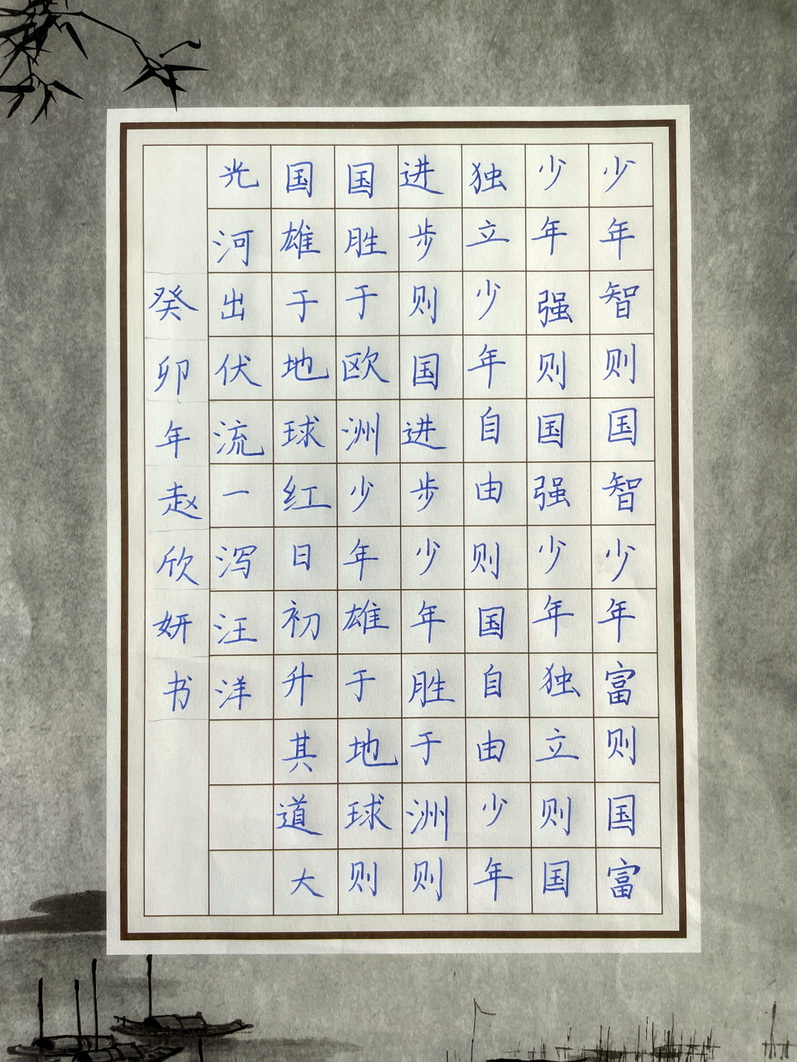 少年智则国智少年富则国富
少年强则国强少年独立则国
独立少年自由则国自由少年
进步则国进步少年胜于洲则
国胜于欧洲少年雄于地球则
国雄于地球红日初升其道大
光河出伏流一泻汪洋
癸卯年赵欣妍书